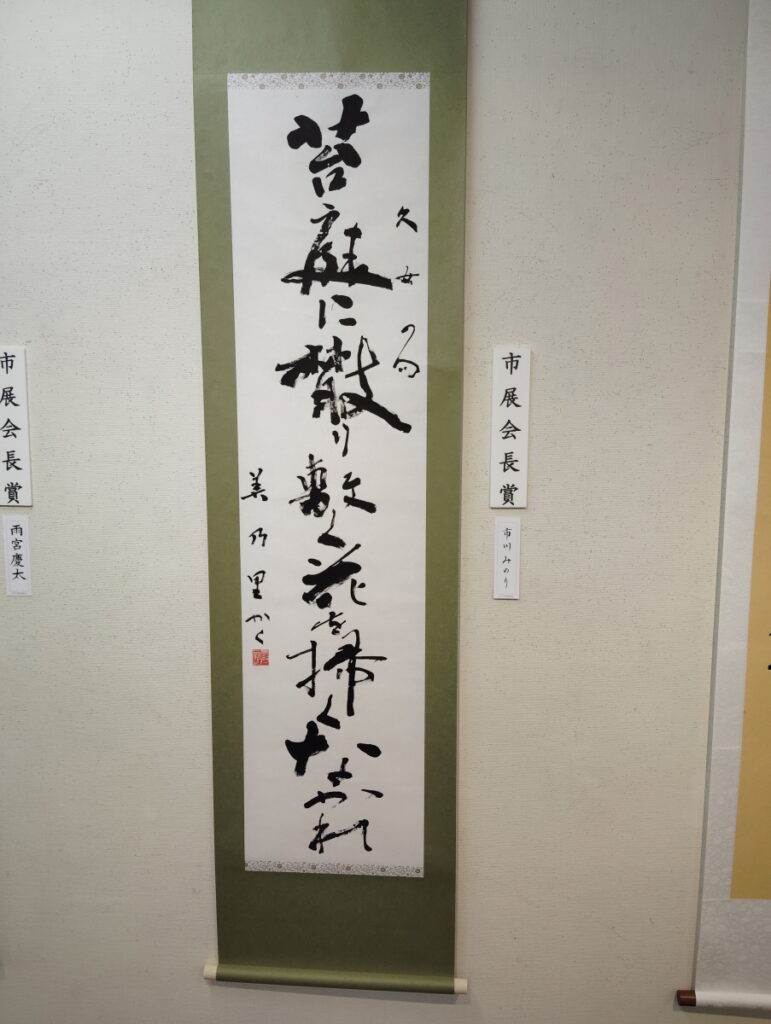 市展会長賞
市川みのり
久女の句
苔庭に散り敷く花を掃くなかれ
美乃里かく
市展会長賞
雨宮慶太